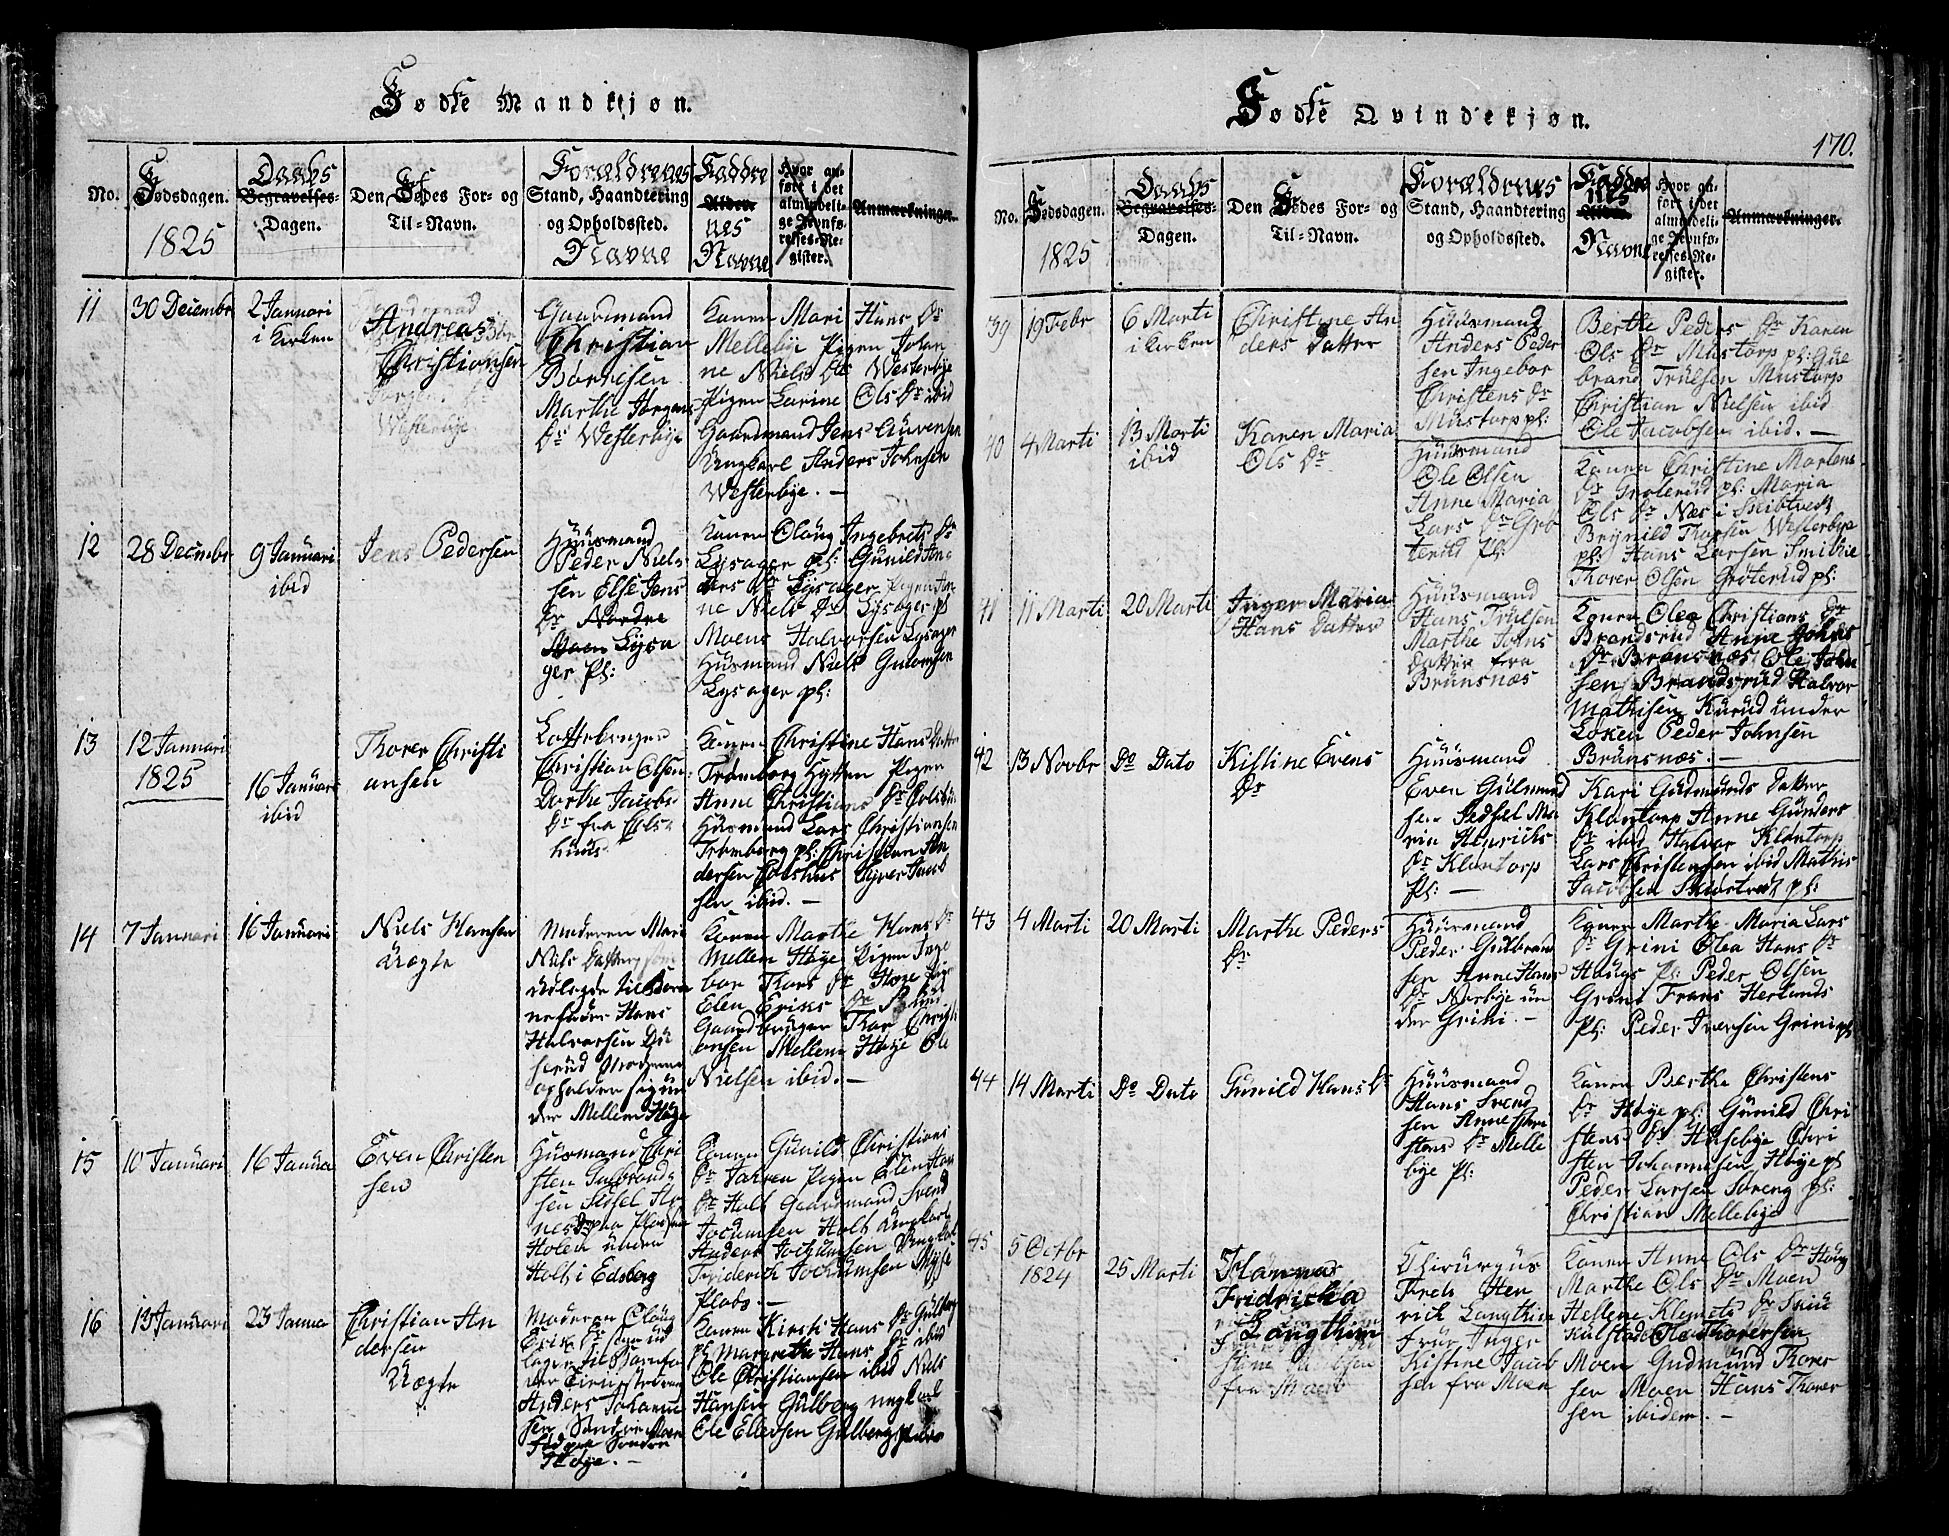 Fødte Mandkjøn.
No.
Fødselsdagen.
1825
Daabs
Begravelses-
Dagen.
Den Fødtes For- og
Til-Navn.
Forældrenes
Stand, Haandtering
og Opholdssted.
Navne
Faddre
Alder
nes
Navne
Hvor an-
ført i det
almindeli-
ge Jevnfø-
relses-Re-
gister.
Anmærkninger.
11
30 Decembr
2 Januari
i Kirken
Andreas
Christiansen
Gaardmand
Christian
Borresen
Marthe Jørgens
Dr Westerbye
Konen Mari Hans Dr
Mellebye Pigen Johan
ne Niels Dr Westerbye
Pigen Larine Ols Dr ibid
Gaardmand Jens
Ungkarl Anders Johnsen
Westerbye. —
12
28 Decembr
9 Januari
ibid
Jens Pedersen
Huusmand
Peder Niels
sen Else Jens
Dr Nordre
Moen Lysa
ger Pl:
Konen Olaug Ingebrets Dr
Lysager pl: Gunild An
ders Dr Lysager Pigen An
ne Niels Dr Lysager pl
Moens Halvorsen Lysager
Husmand Niels
Lysager pl:
13
12 Januari
1825
16 Januari
ibid
Thorer Christi
ansen
Christian Olsen
Dorthe Jacobs
Dr fra
huus
Konen Christine Hans Datter
Tromborg Hytten Pigen
Anne Christians Dr
Husmand Lars Christiansen
Tromborg pl: Christian An
dersen
sen ibid. —
14
7 Januari
16 Januari
Niels Hansen
Uægte
Moderen Mari
Niels Datter som
udlagde til Barne
nefader Hans
Halvorsen
Moderen
opholder sig un
der Mellem Høye
Konen Marthe Hans Dr
Mellem Høye Pigen Inge
bor Thors Dr Høye Pige
Elen Eriks Dr
Gaardbruger Thor Christi
ansen Mellem Høye Ole
Nielsen ibid. —
15
10 Januari
16 Janua
Even Christen
sen
Husmand Chri
sten Gulbrand
sen Sissel
Holen under
Holt i Edsberg
Konen Gunild Christians
Dr Pigen Elen Hans
Dr Holt Gaardmand Svend
Jochumsen Holt Ungkarl
Anders Jochumsen Ungkarl
Friderich Jochumsen
Plads. —
16
13 Januari
23 Janua
Christian An
dersen
Uægte
Moderen Olaug
Eriks Dr
Anders Johanne
sen Søndre Moen
Søndre
Høye. —
Konen Kirsti Hans Dr Gulberg
pl Margrethe Hans Dr ibid
Ole Christiansen ibid Niels
Hansen Gulberg ungkarl
Ole Ellevsen Gulberg
Fødte Qvindekjøn.
170.
No.
Fødselsdagen.
1825
Daabs
Begravelses-
Dagen.
Den Fødtes For- og
Til-Navn.
Forældrenes
Stand, Haandtering
og Opholdssted.
Faddre
nes
Alder
Navne
Hvor an-
ført i det
almindeli-
ge Jevnfø-
relses-Re-
gister.
Anmærkninger.
39
19 Febr
6 Marti
i Kirken
Christine An
ders Datter
Huusmand
Anders Peder
sen Ingebor
Christens Dr
Mustorp pl:
Berthe Peders Dr Konen
Ols Dr Mustorp pl:
brand Trulsen Mustorp
Christian Nielsen ibid
Ole Jacobsen ibid. —
40
4 Marti
13 Marti
ibid
Karen Maria
Ols Dr
Huusmand
Ole Olsen
Anne Maria
Lars Dr Grø
terud Pl:
Konen Christine Mortens
Dr Grøterud pl: Maria
Ols Dr Næs i Skibtvedt
Brynild Thorsen Westerbye
pl: Hans Larsen Smithie
Thorer Olsen Grøterud pl:
41
11 Marti
20 Marti
Inger Maria
Hans Datter
Huusmand
Hans Trulsen
Marthe Jons
Datter fra
Brunsnæs
Konen Olea Christians Dr
Brandsrud Anne Johns
Dr Brunsnæs Ole John
sen Brandsrud Halvor
Mathisen Kurud under
Løken Peder Johnsen
Brunsnæs. —
42
13 Novbr
Do Dato
Kistine Evens
Dr
Huusmand
Even Gulmund
sen Sidsel Ma
ria Henriks
Dr Klontorp
Pl: —
Kari Gudmunds Datter
Klontorp Anne Gunders
Dr ibid Halvor Klontorp
Lars Christensen ibid Mathis
Jacobsen pl:
43
4 Marti
20 Marti
Marthe Peders
Dr
Huusmand
Peder Gulbrand
sen Anne Hans
Dr Norbye un
der Grini. —
Konen Marthe Maria Lars
Dr Grini Olea Hans Dr
Haugs pl: Peder Olsen
Grini Frans Herlands
Pl: Peder Iversen Grini pl
44
14 Marti
Do Dato
Gunild Hans Dr
Huusmand
Hans Svend
sen Anne Chri
stens Dr Melle
bye Pl:
Konen Berthe Christens
Dr Høye pl: Gunild Chri
stens Dr Husebye Chri
sten Johannesen Høye pl
Peder Larsen Soreng pl:
Christian Mellebye
45
5 Octbr
1824
25 Marti
Hanna
Fridricka
Langthim
Chirurgus
Freds Hen
rich Langthim
Frue Inger
Kistine Jacob
sen fra Moen
Konen Anne Ols Dr Haug
Marthe Ols Dr Moen
Hellene Klemets Dr
Kulstad Ole Thoresen
Moen Gudmund Thorer
sen Moen Hans Thorer
sen ibidem. —